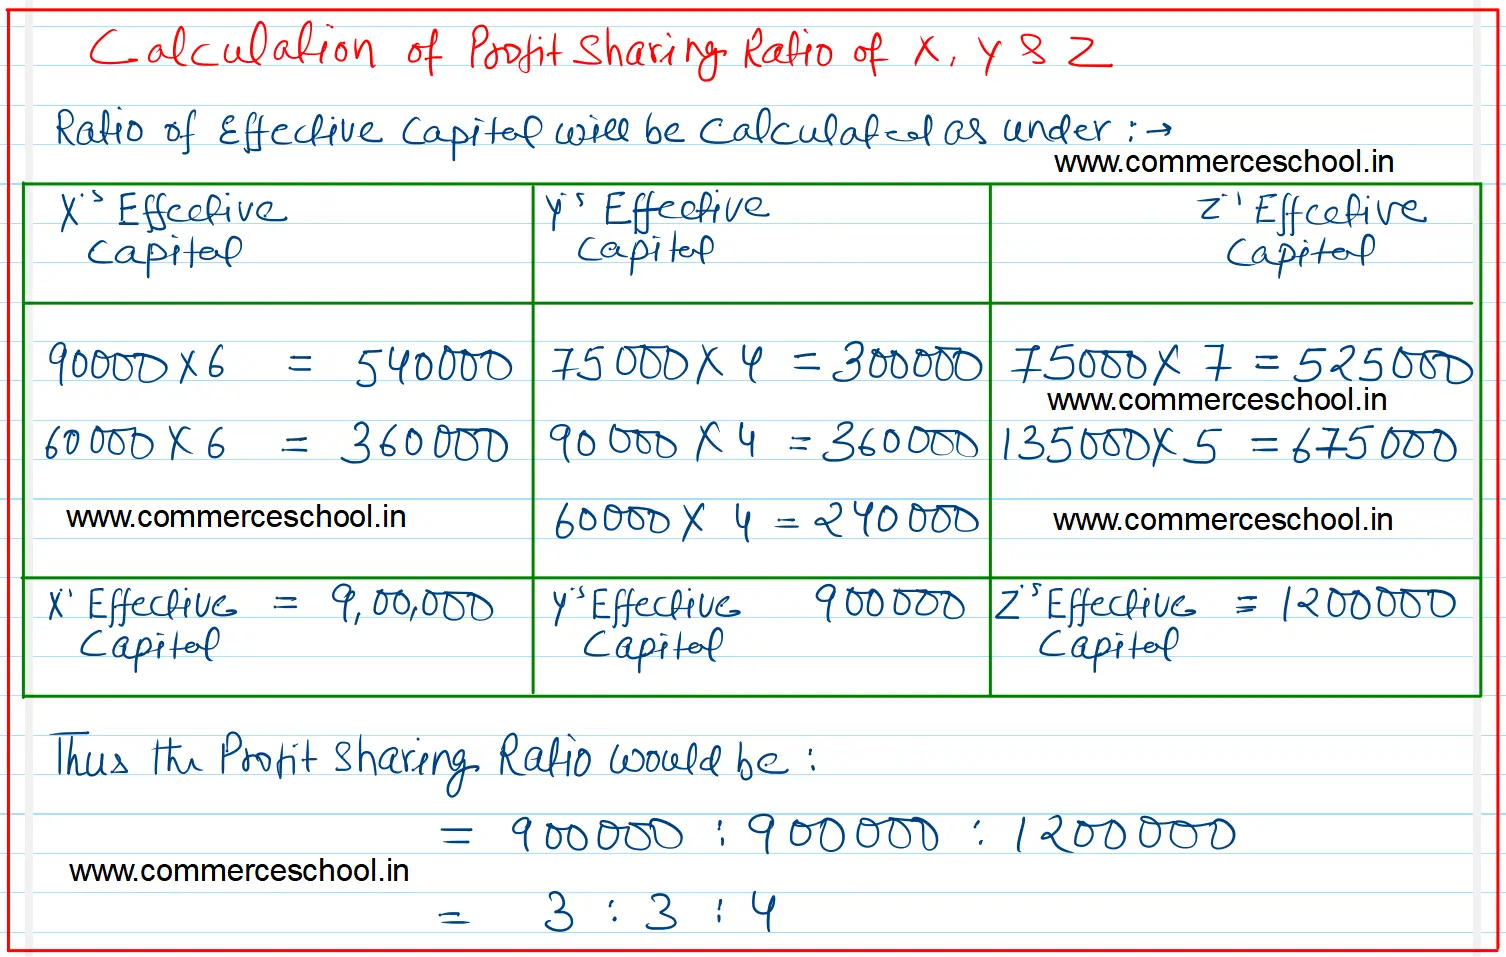 Calculation of Profit Sharing Ratio of X, Y & Z
Ratio of Effective Capital will be calculated as under :→
www.commerceschool.in
X's Effective Capital
Y's Effective Capital
Z' Effective Capital
90000 X 6 = 540000
75000 X 4 = 300000
75000 X 7 = 525000
www.commerceschool.in
60000 X 6 = 360000
90000 X 4 = 360000
135000 X 5 = 675000
www.commerceschool.in
60000 X 4 = 240000
www.commerceschool.in
X' Effective Capital = 9,00,000
Y's Effective Capital 900000
Z's Effective Capital = 1200000
Thus the Profit Sharing Ratio would be :
= 900000 : 900000 : 1200000
www.commerceschool.in
= 3 : 3 : 4